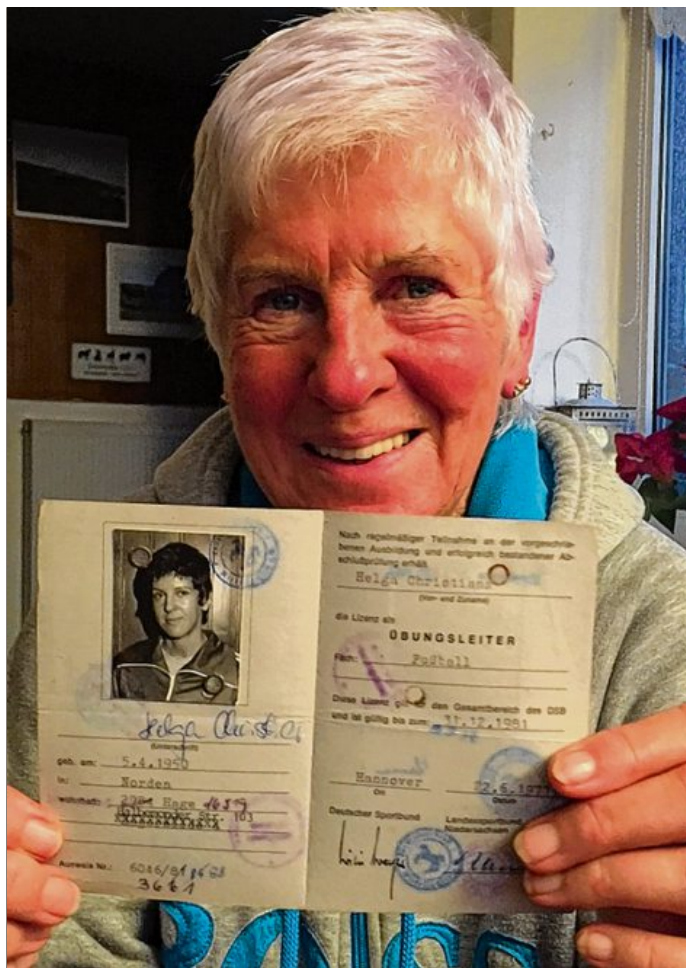 Helga Christians
(Unterschrift)
geb. am: 5.4.1950
in: Norden
wohnhaft: 2984 Hage
Str. 103
Ausweis Nr.: 6046/81
3661
Nach regelmäßiger Teilnahme an der vorgeschrie-
benen Ausbildung und erfolgreich bestandener Ab-
schlußprüfung erhält
Helga Christians
(Vor- und Zuname)
die Lizenz als
ÜBUNGSLEITER
Fach: Fußball
Diese Lizenz gilt den Gesamtbereich des DSB
und ist gültig bis zum: 31.12.1981
Hannover 22.6.197
Ort Datum
Deutscher Sportbund Landessportbund
Niedersachsen